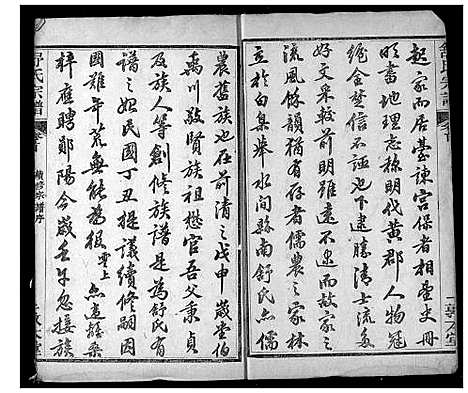 起家而居臺諫宮保者相望史冊
明書地理志稱明代黃郡人物冠
絕金楚信不誣也下逮勝清士流多
好文采較前明雖遠不逮而故家之
流風餘韻猶有存者儒農之家林
立於白杲舉水間縣南舒氏亦儒
農舊族也在前清之戊申歲堂伯
禹川敬賢族祖懋官吾父秉貞
及族人等創修族譜是為舒氏有
譜之始民國丁丑提議續修嗣因
國難年荒無能為役
梓應聘鄖陽今歲壬午忽接族
舒氏宗譜
卷首
續修宗譜序